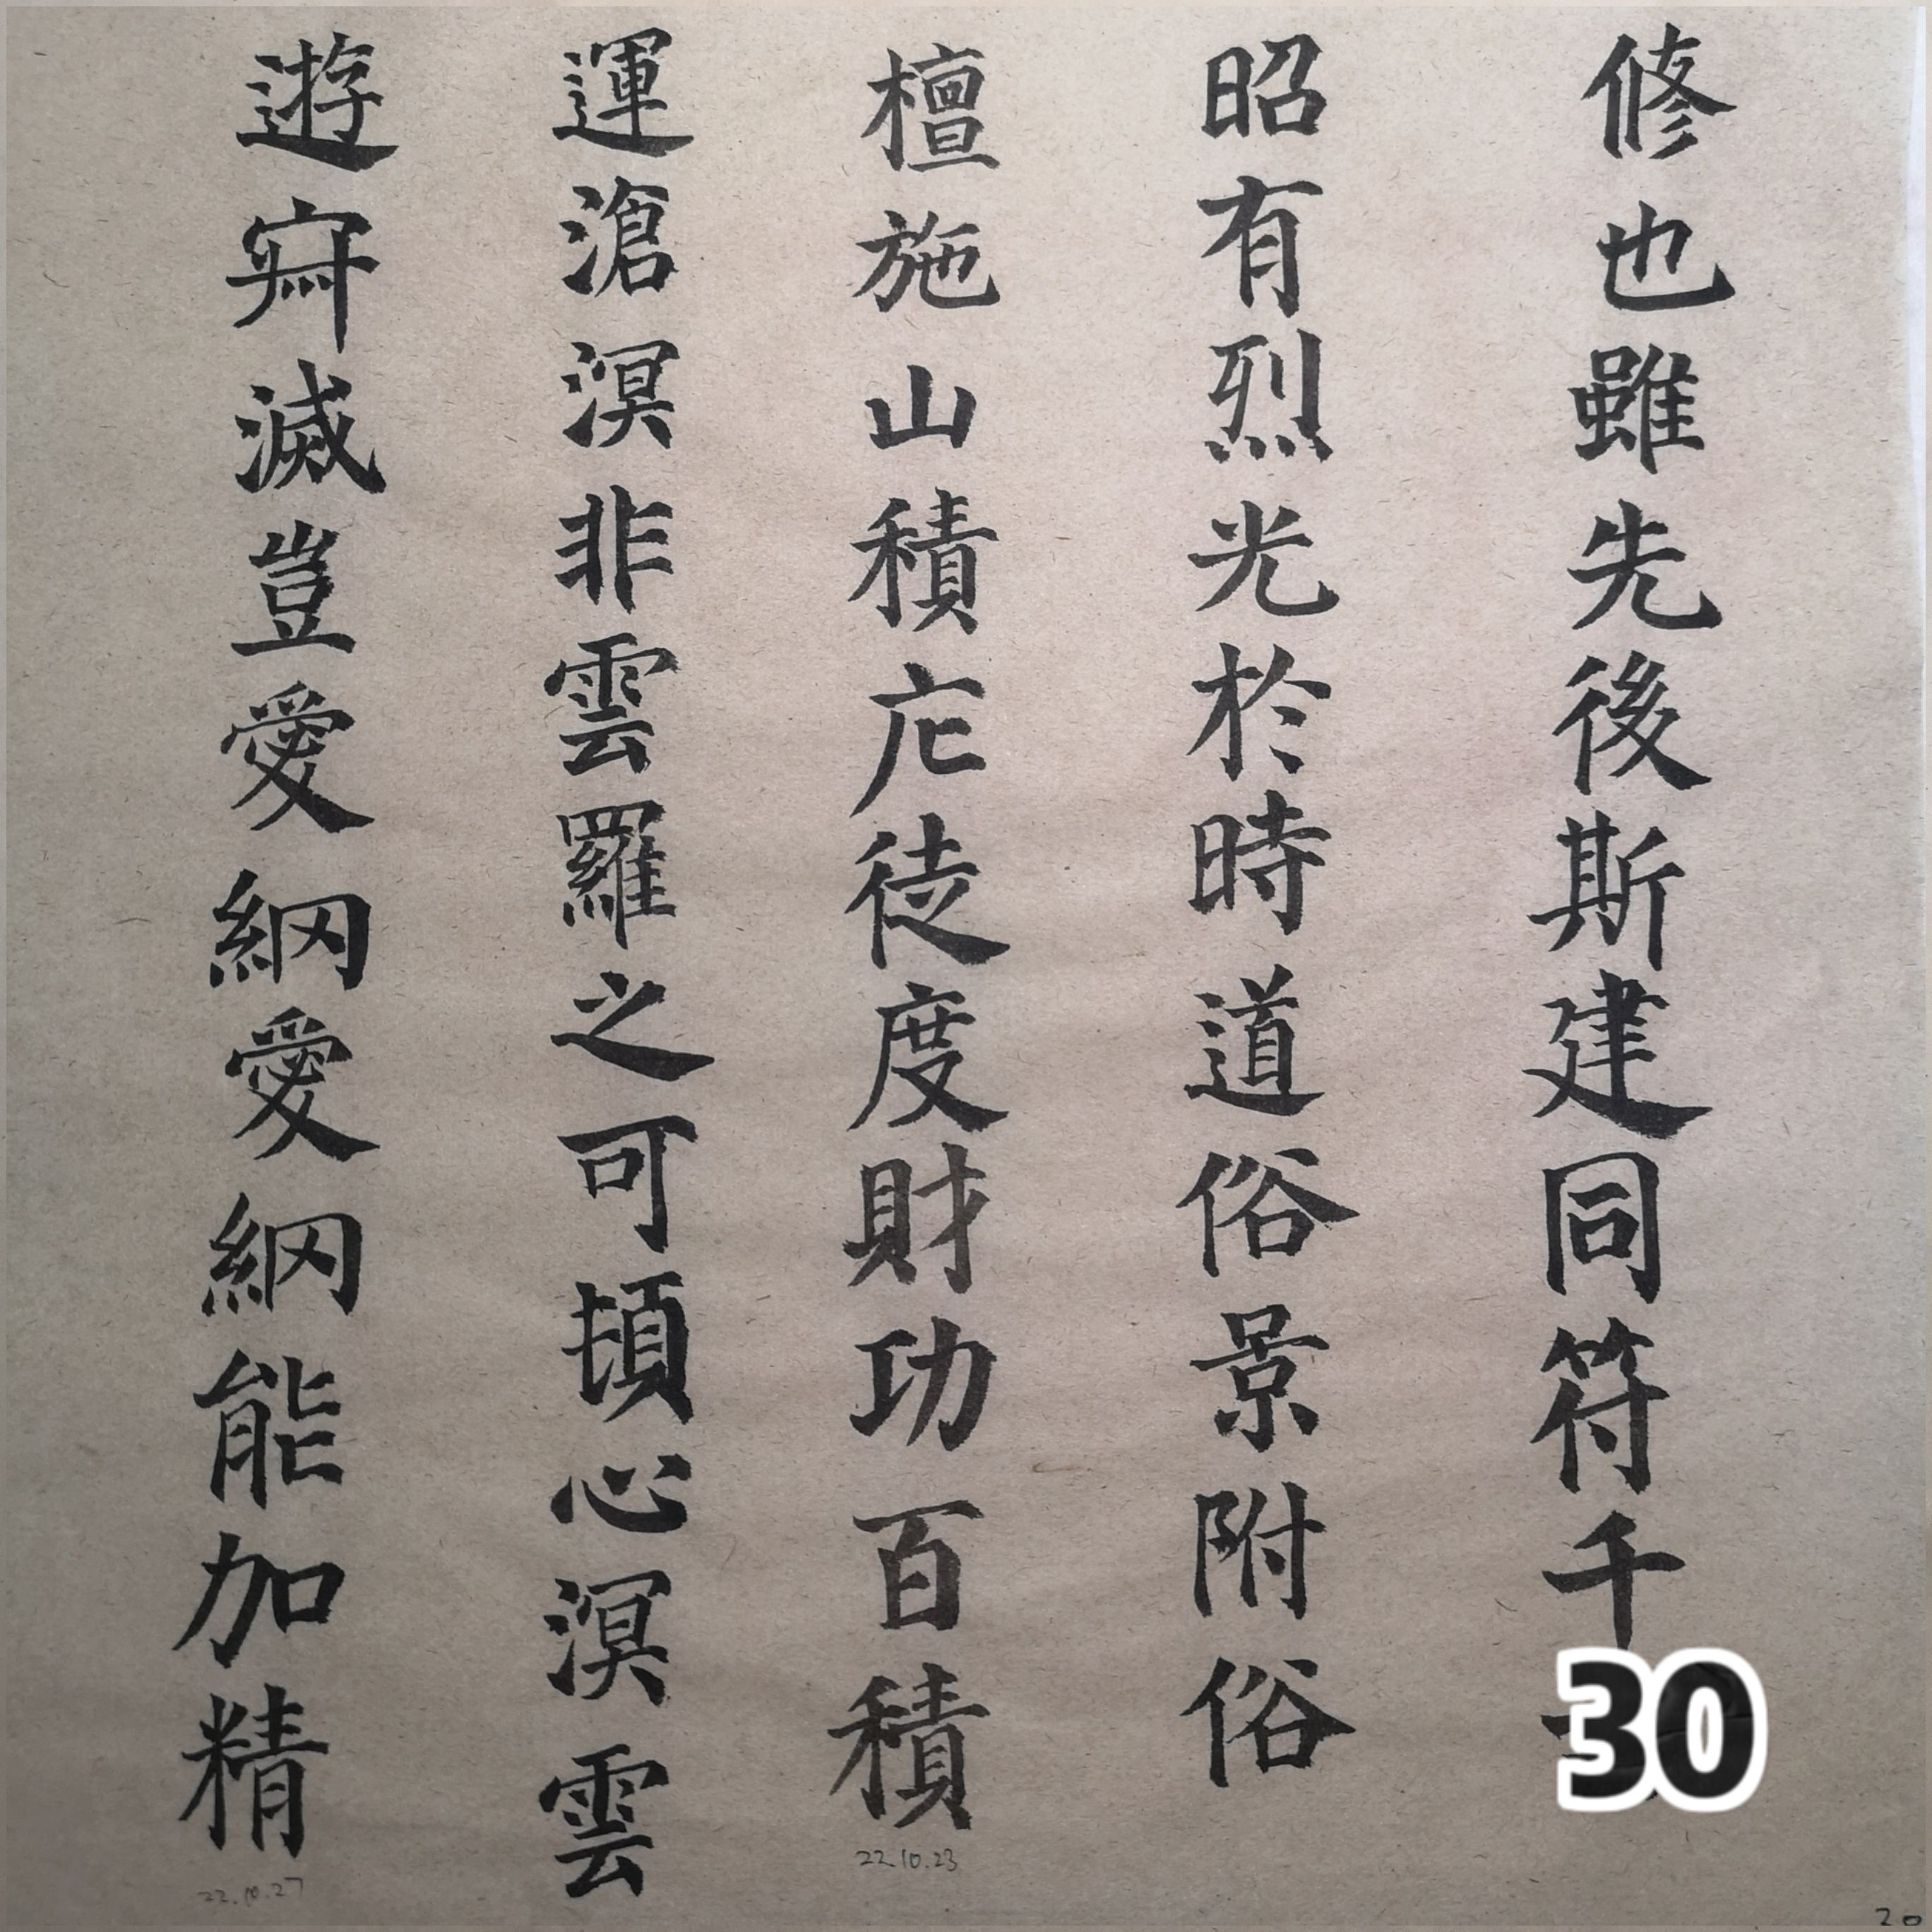 修也雖先後斯建同符千
30
昭有烈光於時道俗景附俗
檀施山積庀徒度財功百積
22.10.23
運滄溟非雲羅之可頓心溟雲
遊寂滅豈愛網愛網能加精
22.10.27
20